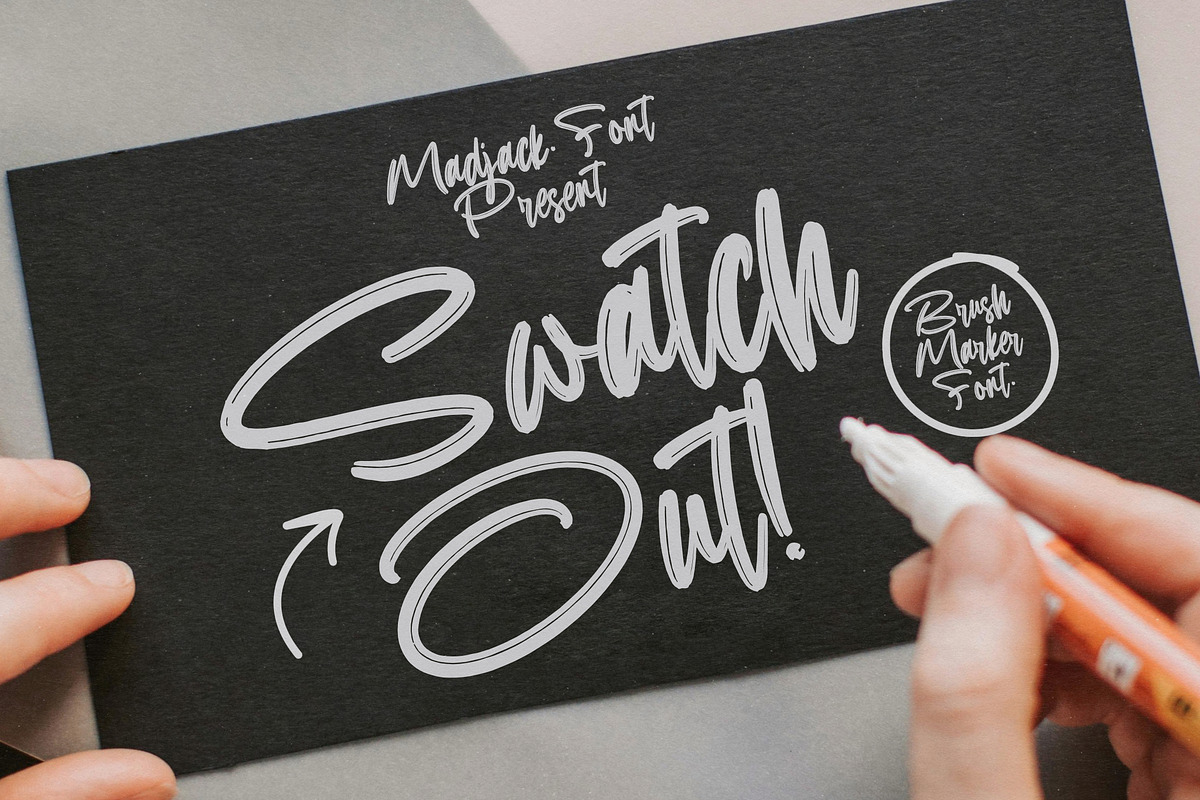 Madjack. Font
Present
Swatch
Out!
Brush
Marker
Font.